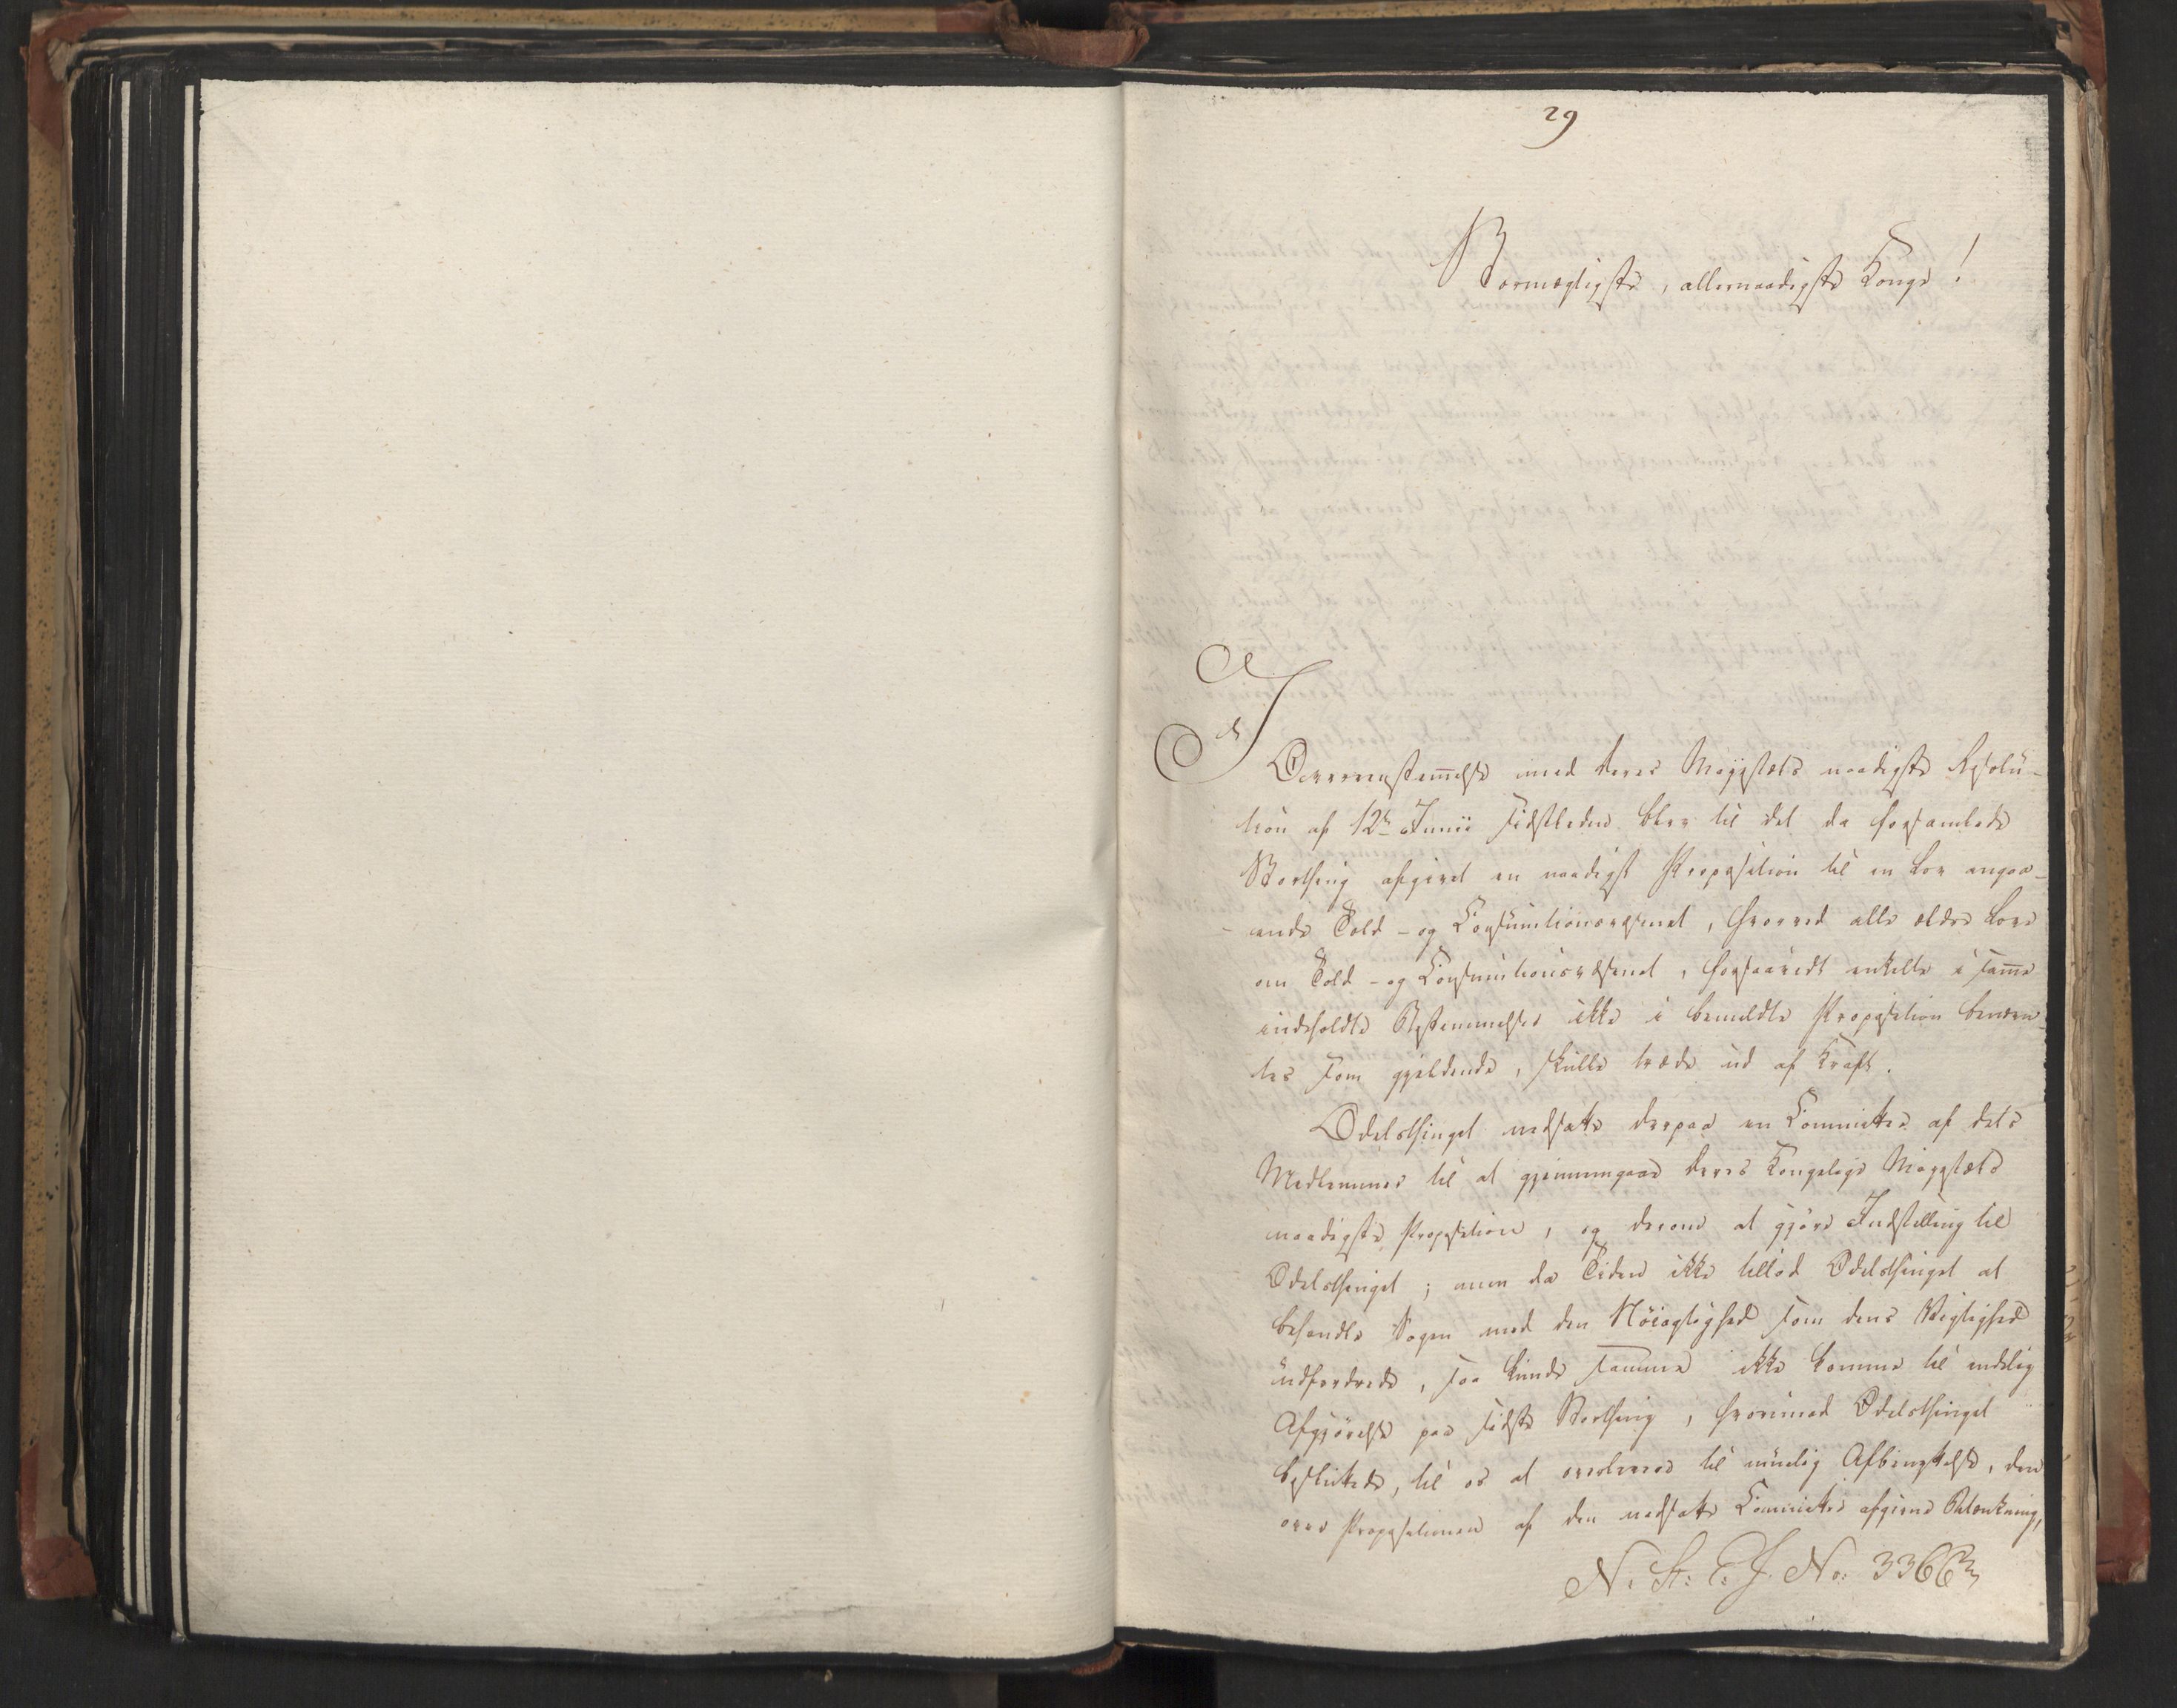 29
Stormægtigste, allernaadigste Konge!
I
Overeenstem̅else med Deres Majestæts naadigste Resolu-
tion af 12te Junii sidstleden blev til det da forsamlede
Storthing afgivet en naadigst Proposition til en Lov angaa-
ende Told- og Consumtionsvæsenet, hvorved alle ældre Love
om Told- og Consumtionsvæsenet, forsaavidt enkelte i sam̅e
indeholdte Bestemmelser ikke i bemeldte Proposition benævn-
tes som gjeldende, skulle træde ud af Kraft.
Odelsthinget nedsatte derpaa en Committee af dets
Medlemmer til at gjennemgaae Deres Kongelige Majestæts
naadigste Proposition, og derom at gjøre Indstilling til
Odelsthinget; men da Tiden ikke tillod Odelsthinget at
behandle Sagen med den Nøiagtighed som dens Vigtighed
udfordrede, saa kunde samme ikke komme til endelig
Afgjørelse paa sidste Storthing, hvorimod Odelsthinget
besluttede, til os at overlevere til muelig Afbenyttelse, den
over Propositionen af den nedsatte Committee afgivne Betænkning,
N: St: E: J. No: 3366